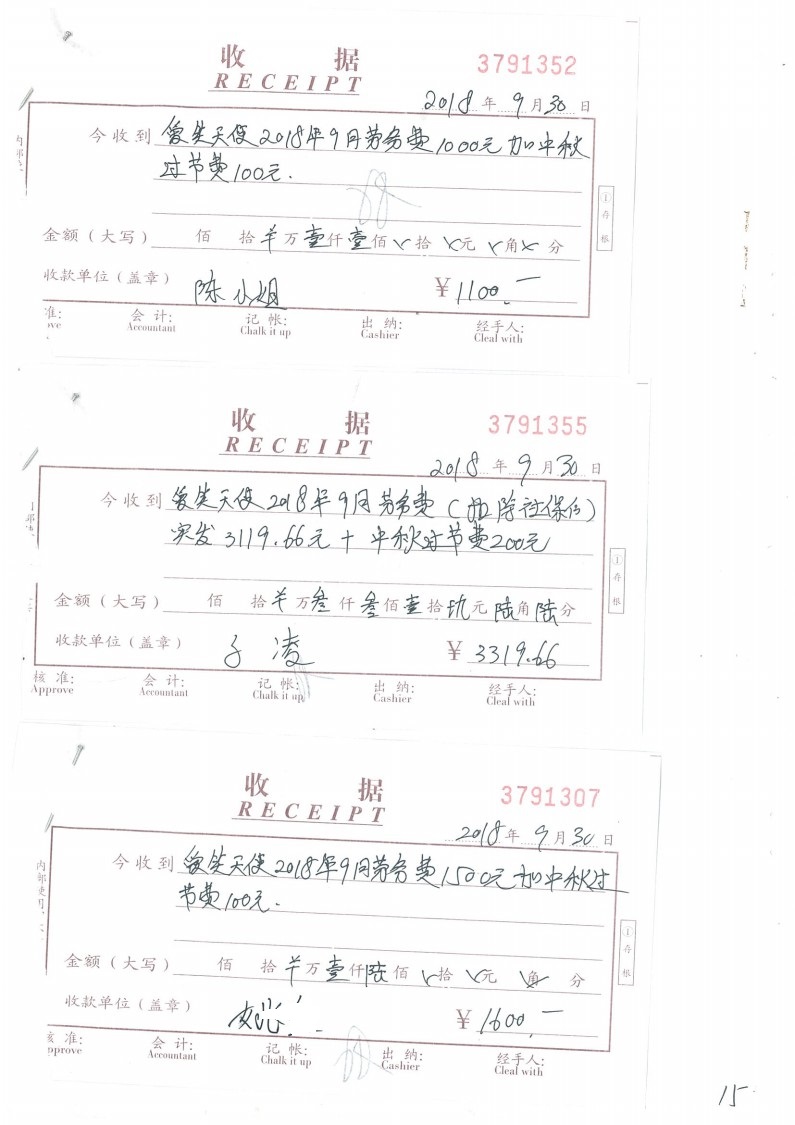 收 据
RECEIPT
3791352
2018 年 9 月 30 日
今收到 爱笑天使2018年9月劳务费1000元加中秋
过节费100元.
金额（大写） 佰 拾 羊 万 壹 仟 壹 佰 ㄨ 拾 ㄨ 元 ㄨ 角 ㄨ 分
收款单位（盖章） 陈小姐 ¥ 1100.—
①存根
准: 会计: 记帐: 出纳: 经手人:
ove Accountant Chalk it up Cashier Cleal with
收 据
RECEIPT
3791355
2018 年 9 月 30 日
今收到 爱笑天使2018年9月劳务费(扣除社保的)
实发3119.66元＋中秋过节费200元
金额（大写） 佰 拾 羊 万 叁 仟 叁 佰 壹 拾 玖 元 陆 角 陆 分
收款单位（盖章） 子凌 ¥ 3319.66
①存根
核准: 会计: 记帐: 出纳: 经手人:
Approve Accountant Chalk it up Cashier Cleal with
收 据
RECEIPT
3791307
2018 年 9 月 30 日
今收到 爱笑天使2018年9月劳务费1500元加中秋过
节费100元.
内部使用
金额（大写） 佰 拾 羊 万 壹 仟 陆 佰 ㄨ 拾 ㄨ 元 角 分
收款单位（盖章） ¥ 1600.—
①存根
准: 会计: 记帐: 出纳: 经手人:
pprove Accountant Chalk it up Cashier Cleal with
15